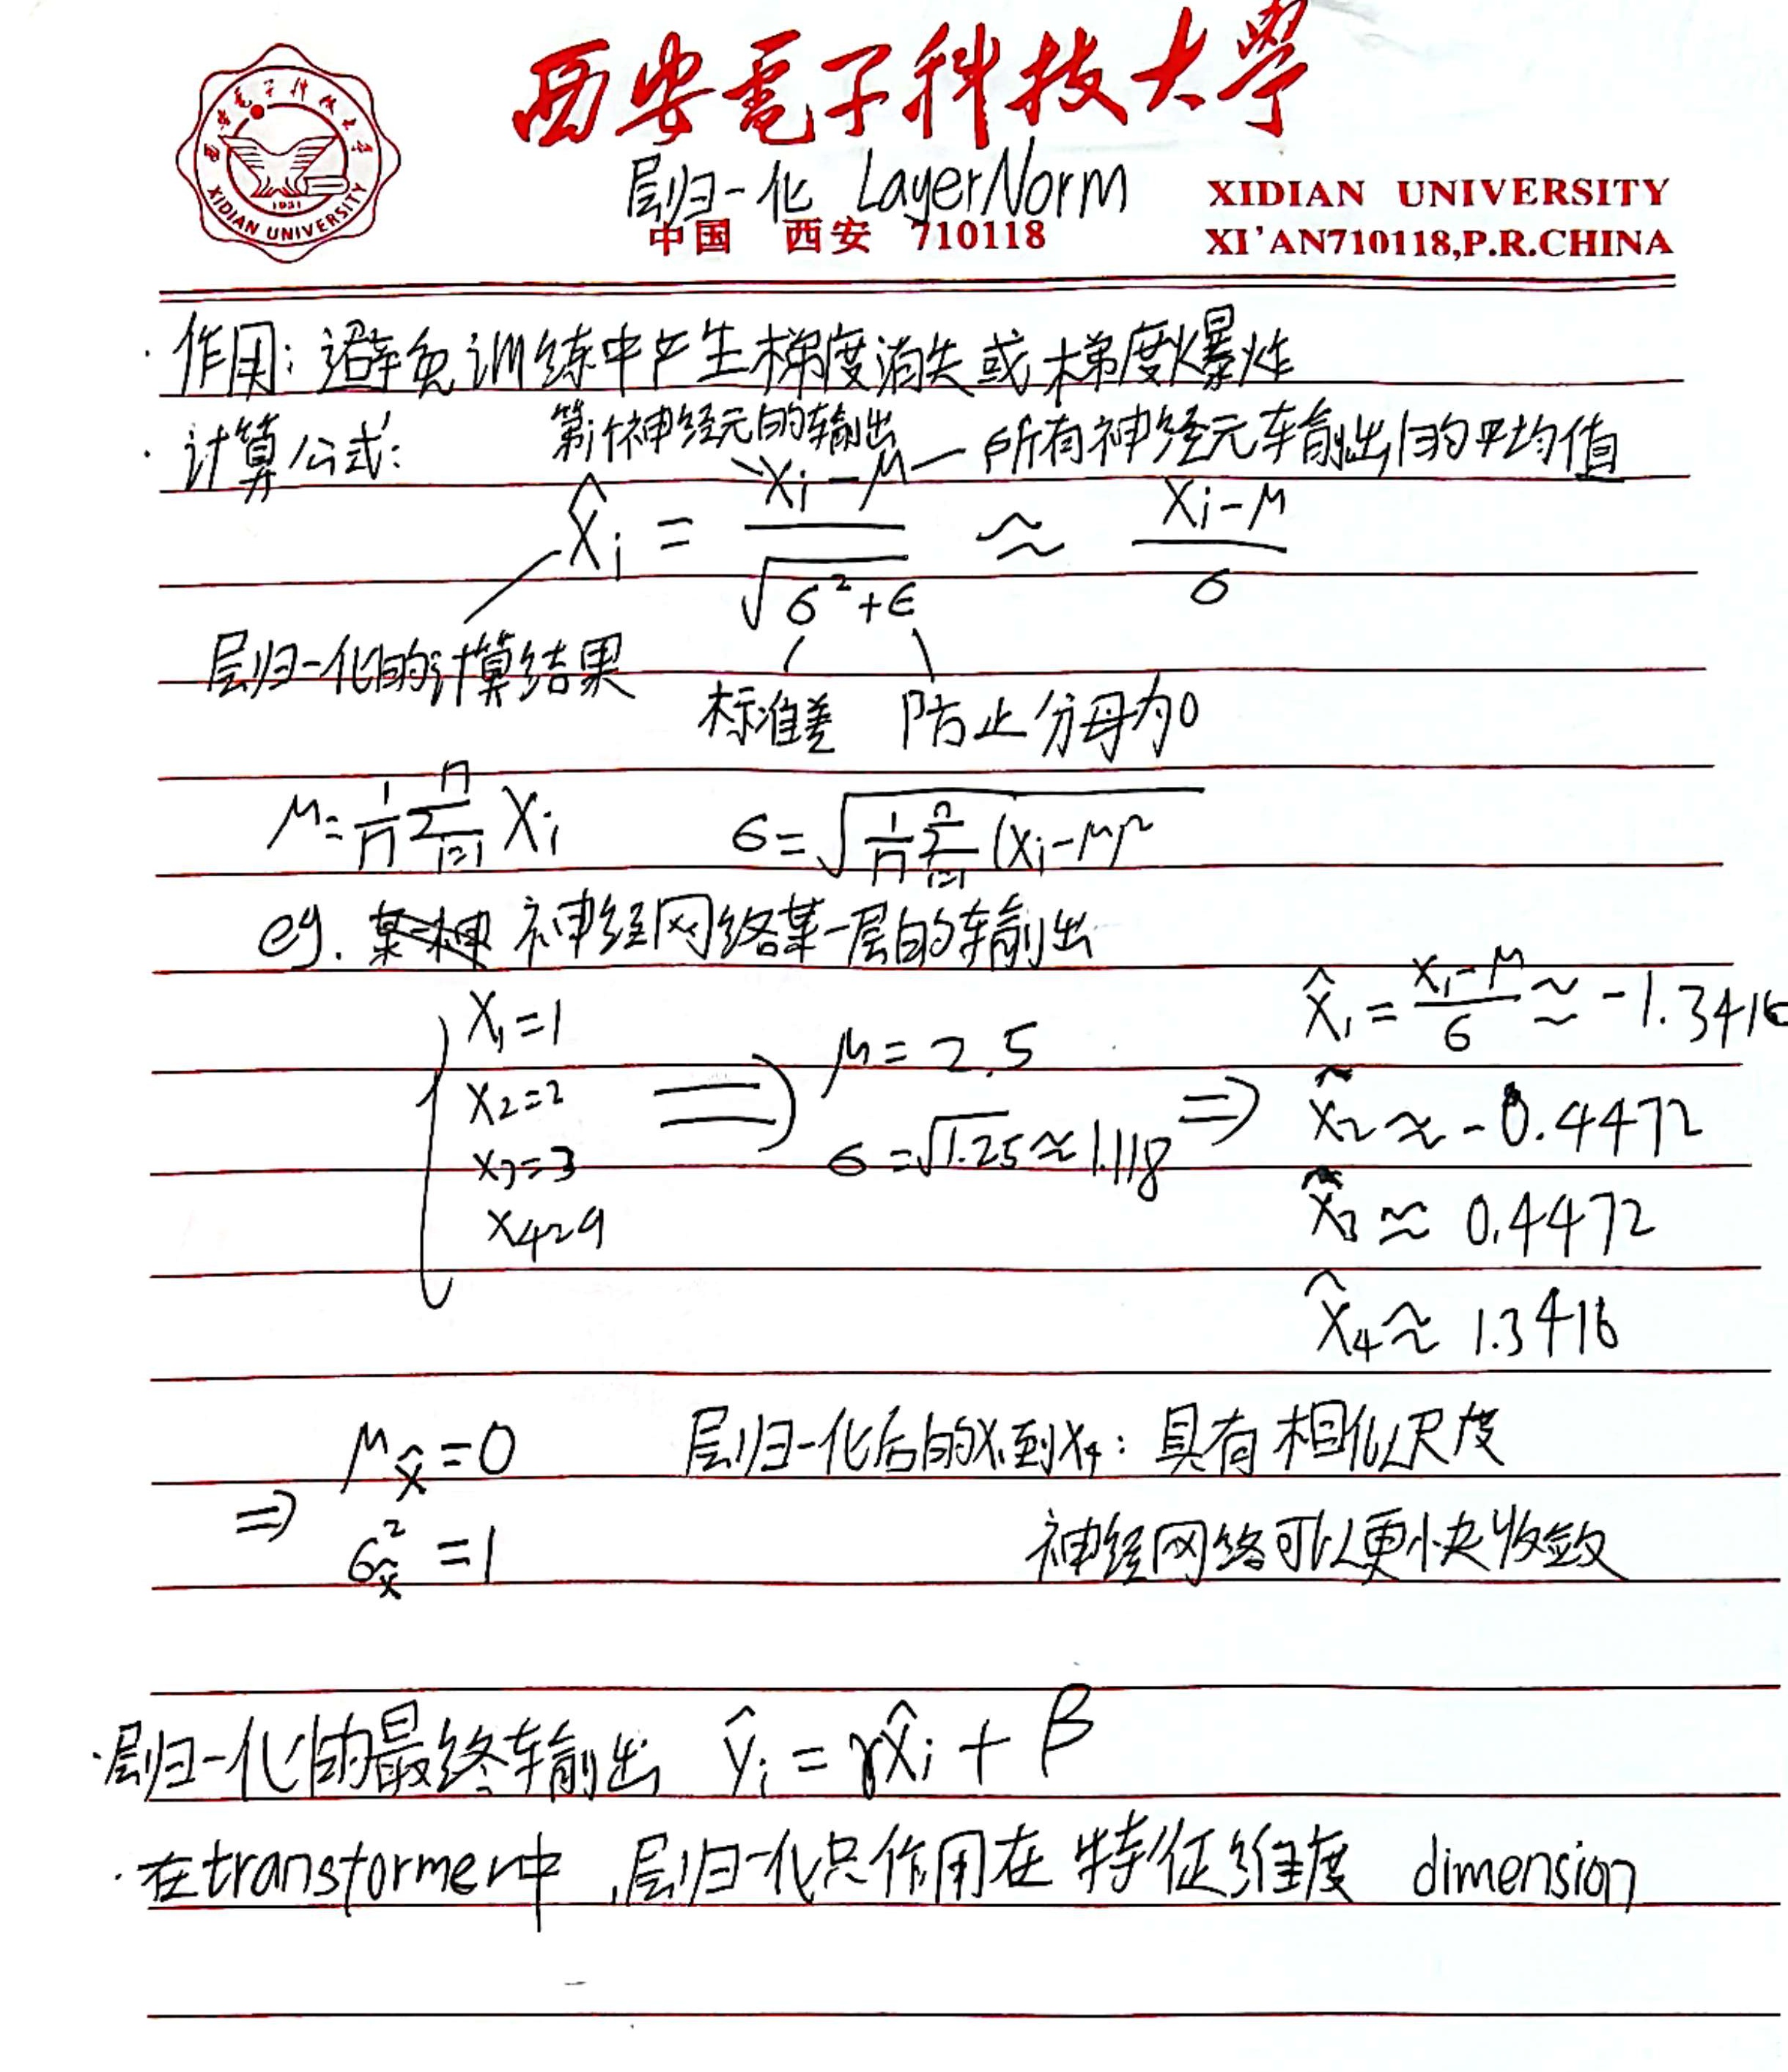 西安電子科技大學
层归一化 LayerNorm
中国 西安 710118
XIDIAN UNIVERSITY
XI'AN710118,P.R.CHINA
西安电子科技大学
1931
XIDIAN UNIVERSITY
· 作用: 避免训练中产生梯度消失或梯度爆炸
· 计算公式:
第i个神经元的输出
所有神经元输出的平均值
x̂ᵢ = (xᵢ-μ)/√(σ²+ϵ) ≈ (xᵢ-μ)/σ
层归一化的计算结果
标准差 防止分母为0
μ = 1/n Σⁿᵢ₌₁ xᵢ σ = √(1/n Σⁿᵢ₌₁ (xᵢ-μ)²)
eg. 神经网络某一层的输出
x₁=1
x₂=2
x₃=3
x₄=4
⇒ μ = 2.5
σ = √1.25 ≈ 1.118
⇒ x̂₁ = (x₁-μ)/σ ≈ -1.3416
x̂₂ ≈ -0.4472
x̂₃ ≈ 0.4472
x̂₄ ≈ 1.3416
⇒ μx̂ = 0
σ²x̂ = 1
层归一化后的x₁到x₄: 具有相似尺度
神经网络可以更快收敛
· 层归一化的最终输出 ŷᵢ = γx̂ᵢ + β
· 在transformer中,层归一化只作用在特征维度 dimension